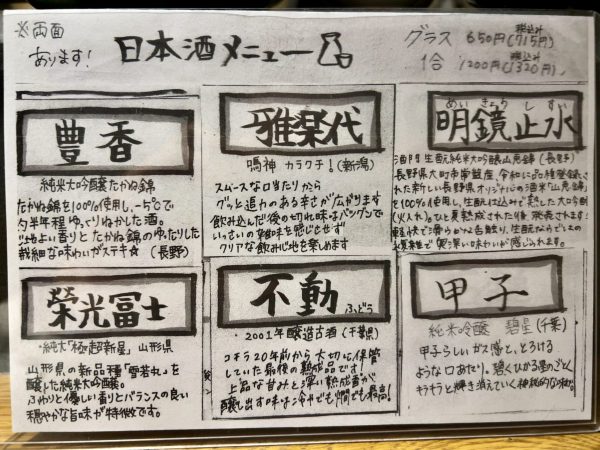 ※両面
あります!
日本酒メニュー
グラス 650円(税込み715円)
1合 1200円(税込み1320円)
豊香
純米大吟醸たかね錦
たかね錦を100%使用し、-5℃で
約半年程ゆっくりねかした酒。
心地よい香りとたかね錦のゆたりした
繊細な味わいがステキ☆ (長野)
雅楽代
鳴神 カラクチ!(新潟)
スムースな口当たりから
グッと迫力のある辛さが広がります
飲み込んだ後の切れ味はバツグンで
いっさいの雑味を感じさせず
クリアな飲み心地を楽しめます
めいきょうしすい
明鏡止水
酒門 生酛純米大吟醸山恵錦 (長野)
長野県大町市常盤産、令和に品種登録
された新しい長野県オリジナルの酒米「山恵錦」
を100%使用し、生酛仕込みで醸した大吟醸
(火入れ)。ひと夏熟成された後発表できます!
軽快で滑らかな舌触り、生酛ならではの
奥深い味わいが感じられます。
榮光冨士
純大「極超新星」山形県
山形県の新品種「雪若丸」を
醸した純米大吟醸。
ふわりと優しい香りとバランスの良い
穏やかな旨味が特徴です。
不動
ふどう
2001年醸造古酒 (千葉県)
コチラ20年前から大切に保管
していた最後の熟成品です!
上品な甘みと深い熟成香が
醸し出す味は冷でも燗でも最高!
甲子
純米吟醸 碧星 (千葉)
甲子らしいガス感と、とろける
ような口あたり。碧くひかる星のごとく
キラキラと輝き消えていく神秘的な酒。